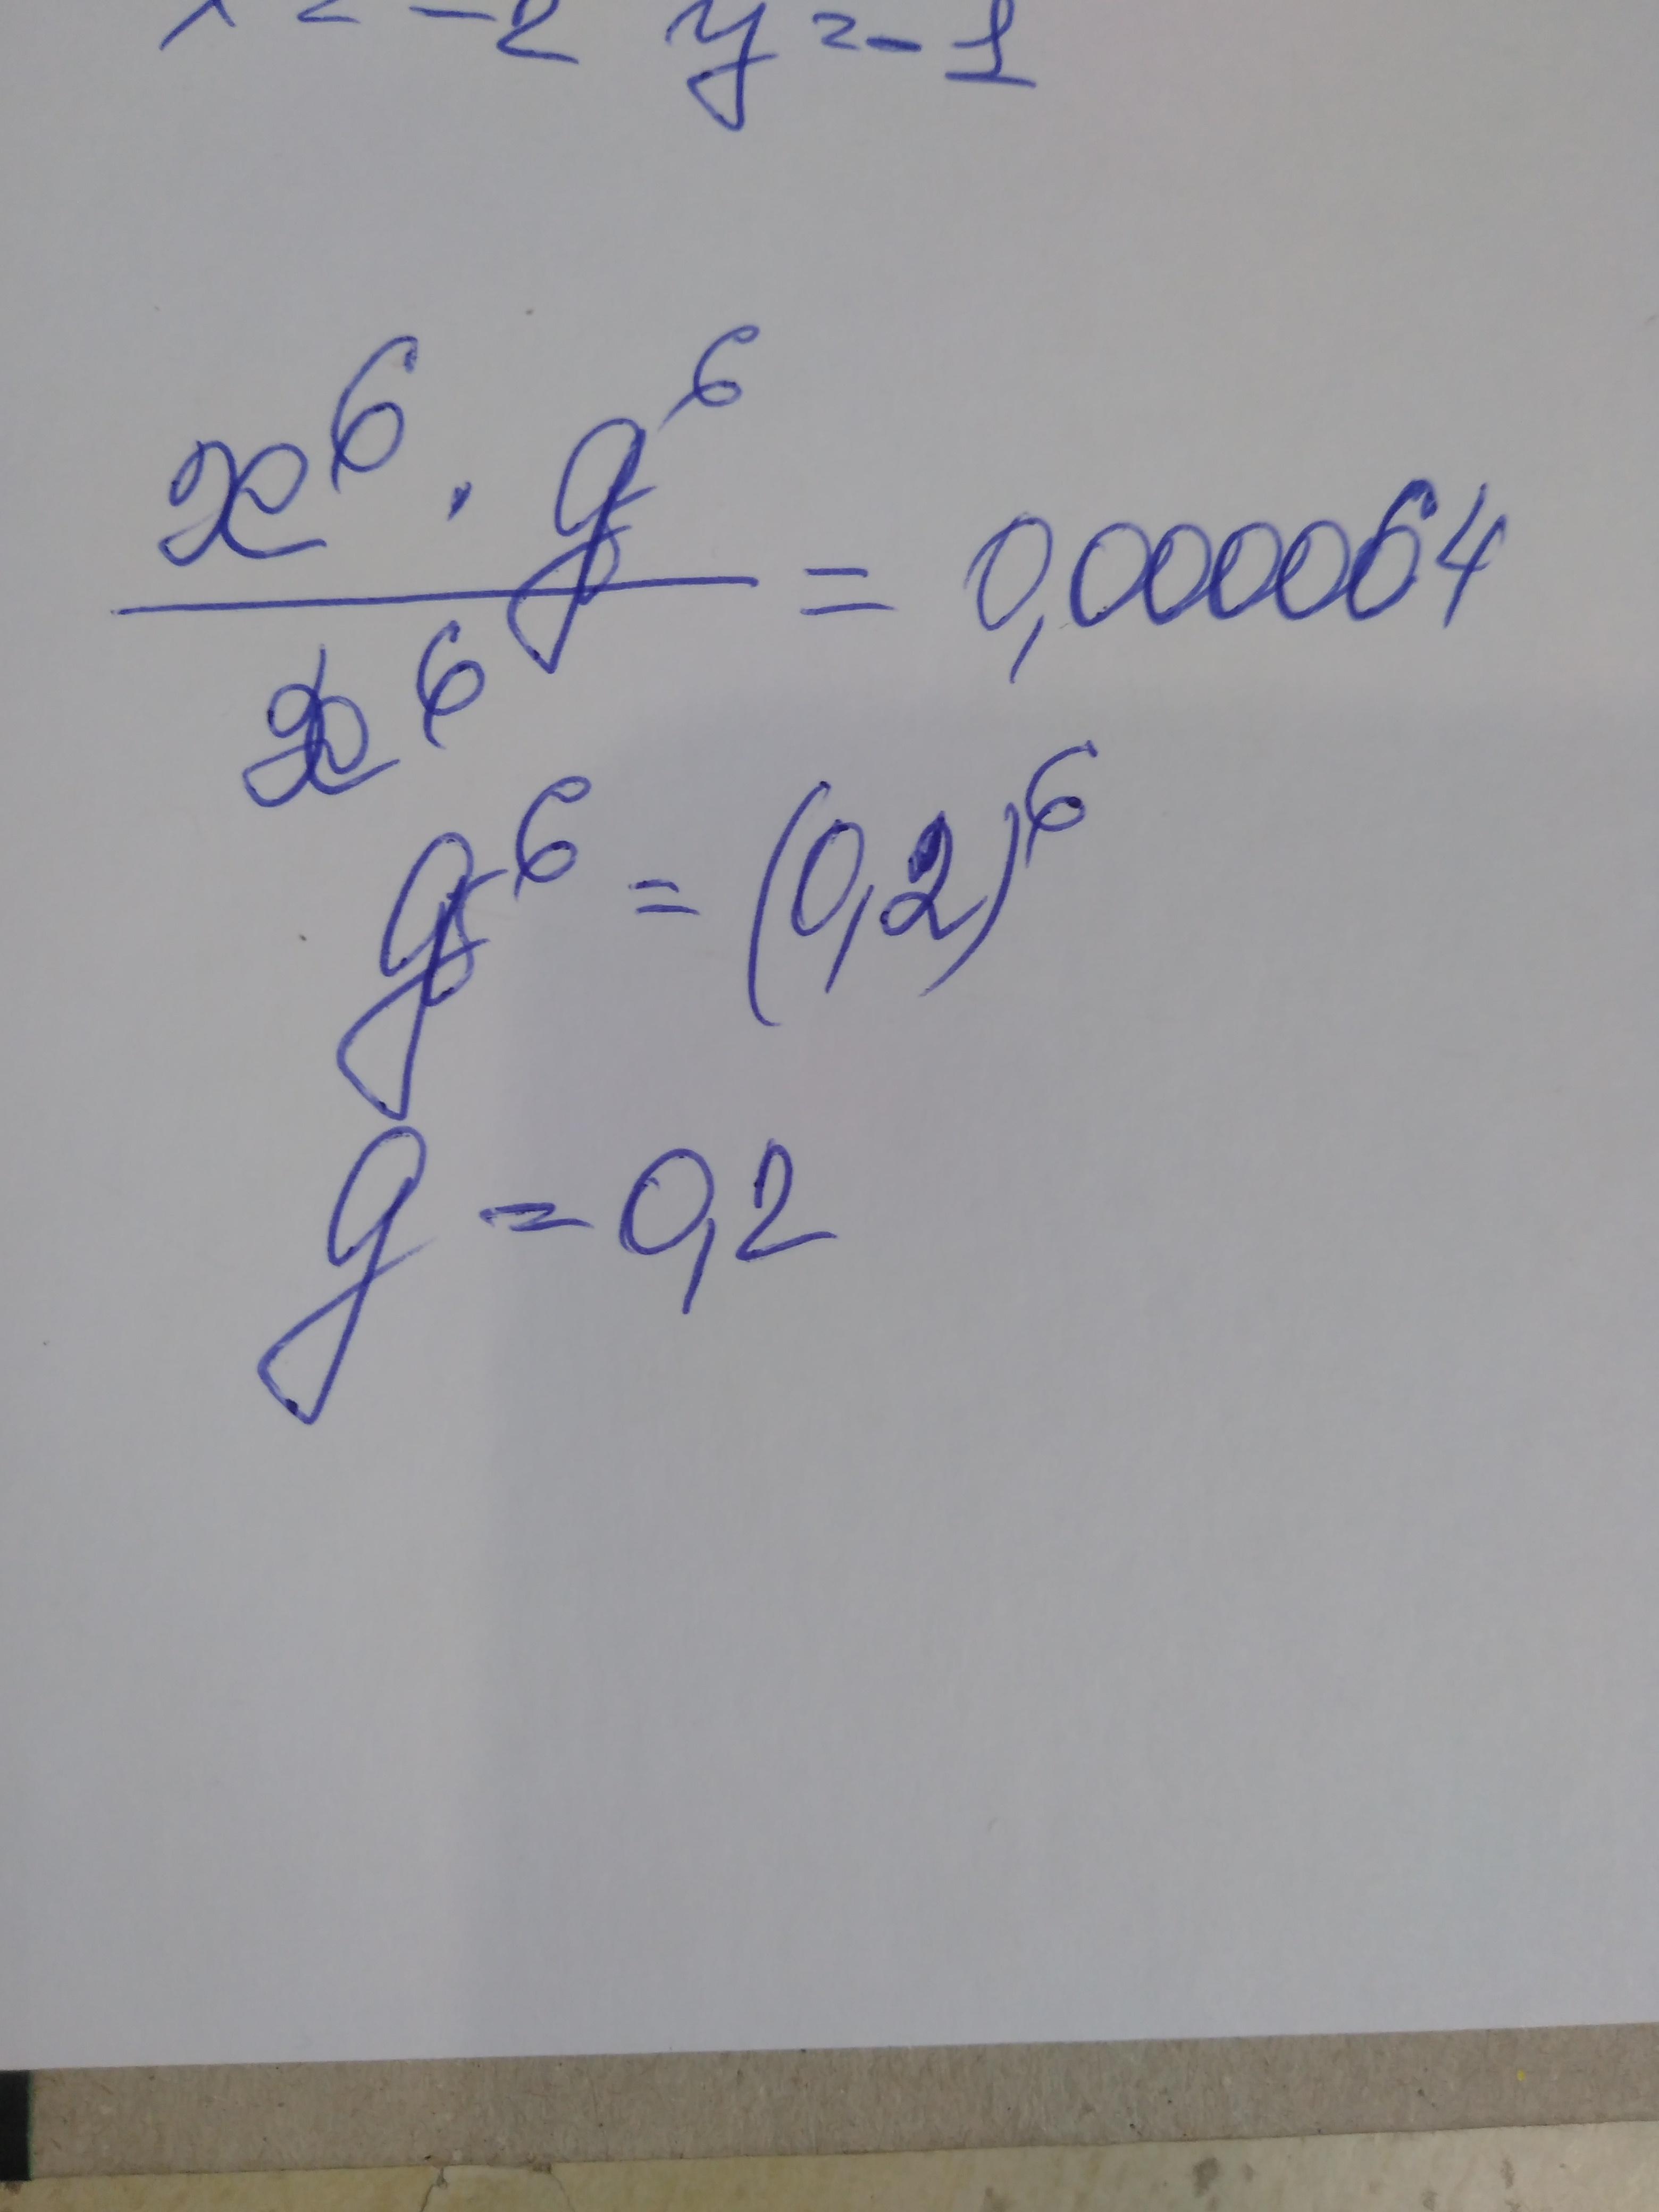 x = -2 y = -1
x⁶ · y⁶
x⁶
= 0,000064
y⁶ = (0,2)⁶
y = 0,2